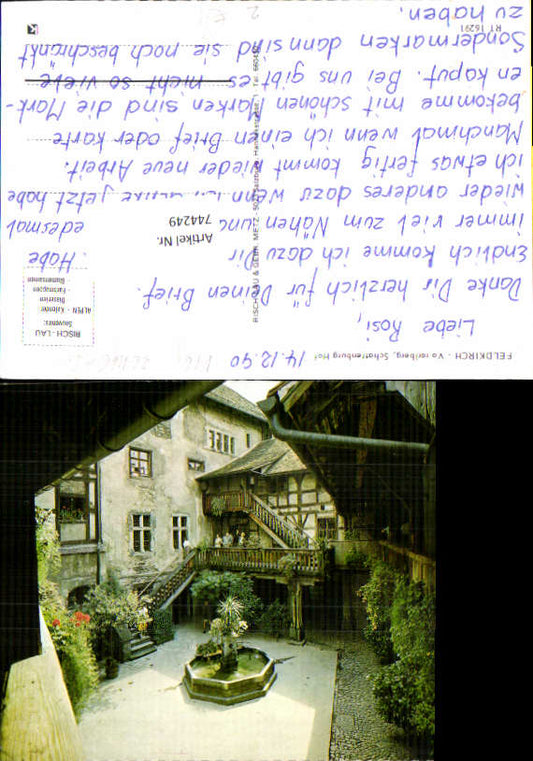 FELDKIRCH - Vorarlberg, Schattenburg Hof
14.12.90
Liebe Rosi,
Danke Dir herzlich für Deinen Brief.
Endlich komme ich dazu Dir
. Habe
immer viel zum Nähen und
edesmal
wieder anderes dazu wenn
jetzt habe
ich etwas fertig kommt wieder neue Arbeit.
Manchmal wenn ich einen Brief oder Karte
bekomme mit schönen Marken sind die Mark-
en kaput. Bei uns gibt es nicht so viele
Sondermarken dann sind sie noch beschränkt
zu haben.
RISCH-LAU
Souvenirs:
ALPEN - Kalender
Raritäten
Artikel Nr.
744249
RISCH-LAU & GEBR. METZ, 50
RT 16291
K